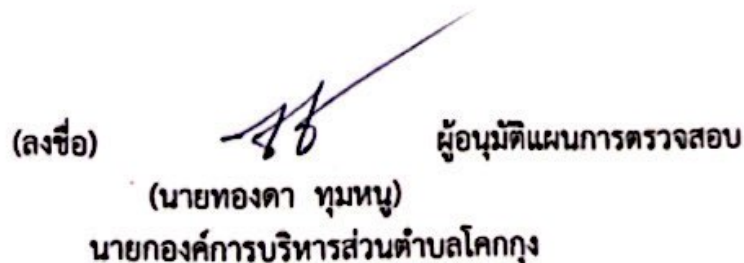 (ลงชื่อ) ผู้อนุมัติแผนการตรวจสอบ
(นายทองดา ทุมหนู)
นายกองค์การบริหารส่วนตำบลโคกกุง